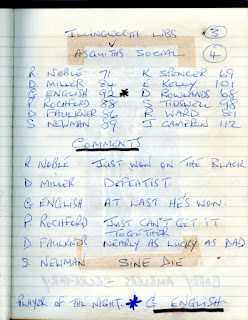 ILLINGWORTH LIBS 3
v
ASQUITHS SOCIAL 4
R NOBLE 71 K SPENCER 69
D MILLER 84 E KELLY 101
G ENGLISH 92 * D ROWLANDS 68
P ROCHFORD 88 S TIDSWELL 98
D FAULKNER 86 R WARD 51
S NEWMAN 89 J CAMERON 112
COMMENTS
R NOBLE JUST WON ON THE BLACK
D MILLER DEFEATIST.
G ENGLISH AT LAST HE'S WON.
P ROCHFORD JUST CAN'T GET IT
TOGETHER
D FAULKNER NEARLY AS LUCKY AS DAD
S NEWMAN SINE DIE
PLAYER OF THE NIGHT. * G ENGLISH